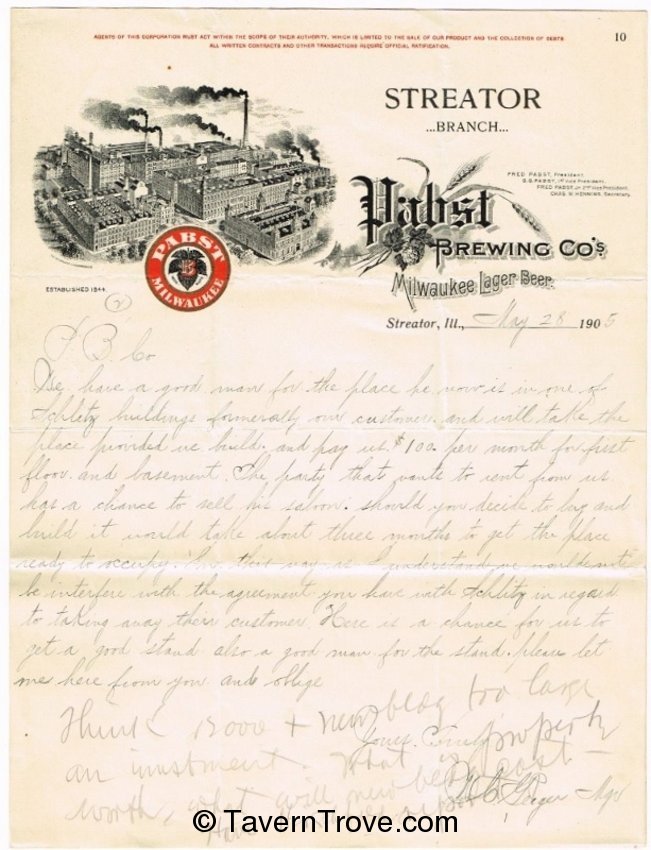 AGENTS OF THIS CORPORATION MUST ACT WITHIN THE SCOPE OF THEIR AUTHORITY, WHICH IS LIMITED TO THE SALE OF OUR PRODUCT AND THE COLLECTION OF DEBTS.
ALL WRITTEN CONTRACTS AND OTHER TRANSACTIONS REQUIRE OFFICIAL RATIFICATION.
10
STREATOR
...BRANCH...
FRED PABST, President.
G.G. PABST, 1st Vice President.
FRED PABST, Jr. 2nd Vice President.
CHAS. W. HENNING, Secretary.
Pabst
BREWING CO'S
Milwaukee Lager Beer.
PABST
B
MILWAUKEE
ESTABLISHED 1844.
(2)
Streator, Ill., May 28 1905
P. B. Co
We have a good man for the place he now is in one of
Schlitz buildings formerally our customer and will take the
place provided we build and pay us $100 per month for first
floor and basement. The party that wants to rent from us
has a chance to sell his saloon. should you decide to buy and
build it would take about three months to get the place
ready to occupy. In this way as I understand we would not
be interfere with the agreement you have with Schlitz in regard
to taking away their customer. Here is a chance for us to
get a good stand also a good man for the stand. please let
me here from you and oblige
Think 15000 + new bldg too large
Yours Truly
an investment. What is property
worth, what will new bldg cost
Geiger Mgr
© TavernTrove.com